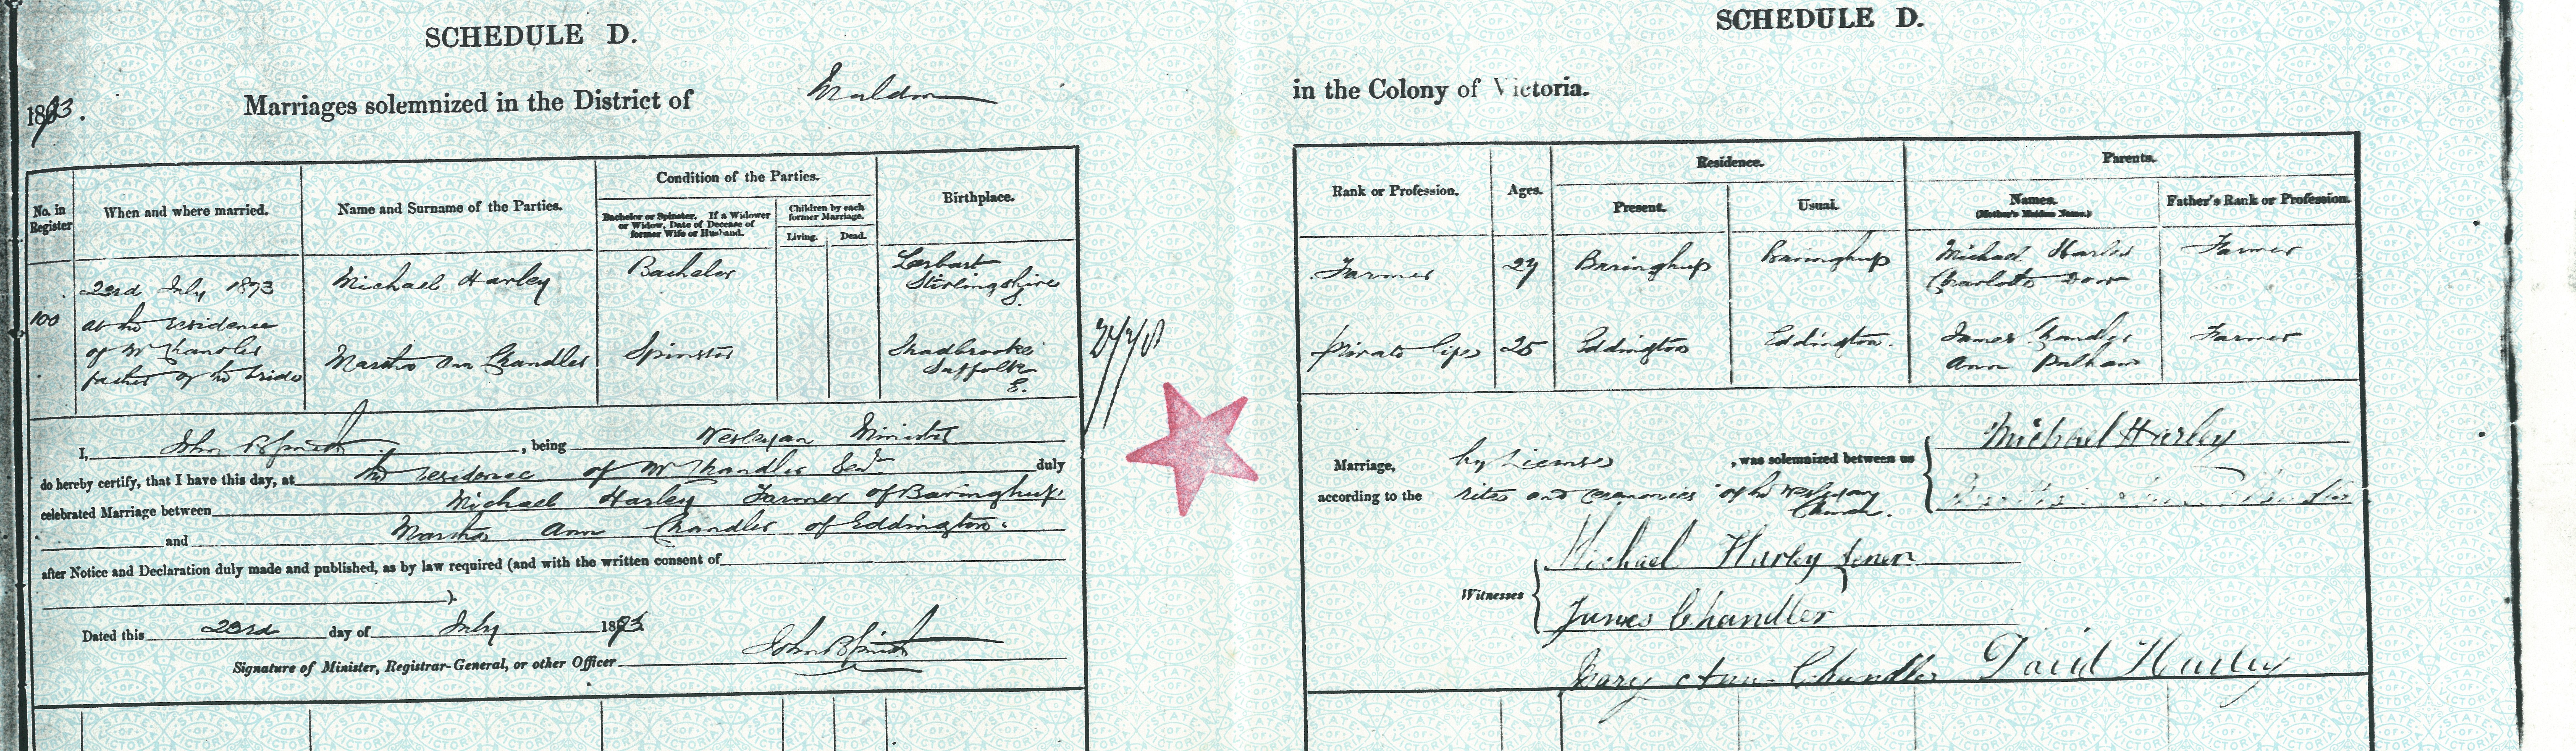 SCHEDULE D.
1873.
Marriages solemnized in the District of Maldon
No. in Register
When and where married.
Name and Surname of the Parties.
Condition of the Parties.
Bachelor or Spinster. If a Widower or Widow, Date of Decease of former Wife or Husband.
Children by each former Marriage.
Living.
Dead.
Birthplace.
100
23rd July 1873
at the residence
of Mr Chandler
father of the bride
Michael Harley
Bachelor
Larbart
Stirlingshire
S.
Martha Ann Chandler
Spinster
Stradbrooke
Suffolk
E.
I, John B Smith, being Wesleyan Minister
do hereby certify, that I have this day, at the residence of Mr Chandler Senr duly
celebrated Marriage between Michael Harley Farmer of Baringhup
and Martha Ann Chandler of Eddington.
after Notice and Declaration duly made and published, as by law required (and with the written consent of
).
Dated this 23rd day of July 1873
Signature of Minister, Registrar-General, or other Officer John B Smith
SCHEDULE D.
in the Colony of Victoria.
Rank or Profession.
Ages.
Residence.
Present.
Usual.
Parents.
Names.
(Mother's Maiden Name.)
Father's Rank or Profession.
Farmer
27
Baringhup
Baringhup
Michael Harley
Charlotte
Farmer
Private
25
Eddington
Eddington.
James Chandler
Ann Pulham
Farmer
Marriage, by License, was solemnized between us
according to the rites and ceremonies of the Wesleyan
Church.
Michael Harley
Martha Ann Chandler
Witnesses
Michael Harley Senr
James Chandler
Mary Ann Chandler
David Harley